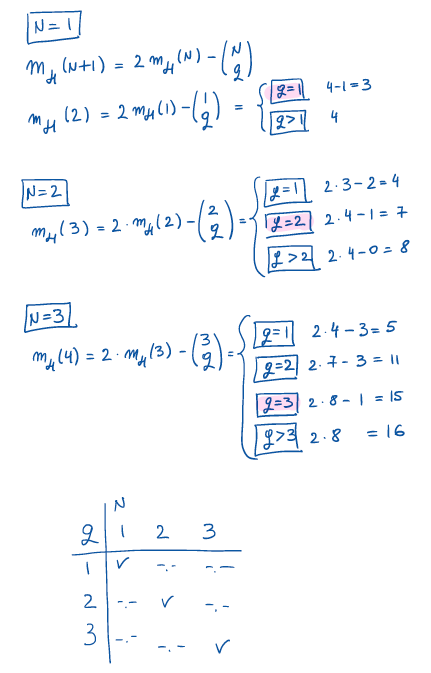 N=1
m_H (N+1) = 2 m_H (N) - (N q)
m_H (2) = 2 m_H (1) - (1 q) = { q=1 4-1=3
q>1 4
N=2
m_H (3) = 2 · m_H (2) - (2 q) = { q=1 2·3-2=4
q=2 2·4-1=7
q>2 2·4-0=8
N=3
m_H (4) = 2 · m_H (3) - (3 q) = { q=1 2·4-3=5
q=2 2·7-3=11
q=3 2·8-1=15
q>3 2·8 =16
N
q 1 2 3
1 ✓ -.- -.-
2 -.- ✓ -.-
3 -.- -.- ✓